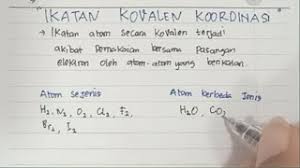 "IKATAN KOVALEN KOORDINASI"
→ Ikatan atom secara kovalen terjadi
akibat Pemakaian bersama Pasangan
elektron oleh atom-atom yang berikatan.
Atom sejenis
H₂, N₂, O₂, Cl₂, F₂,
Br₂, I₂
Atom berbeda Jenis
H₂O, CO₂